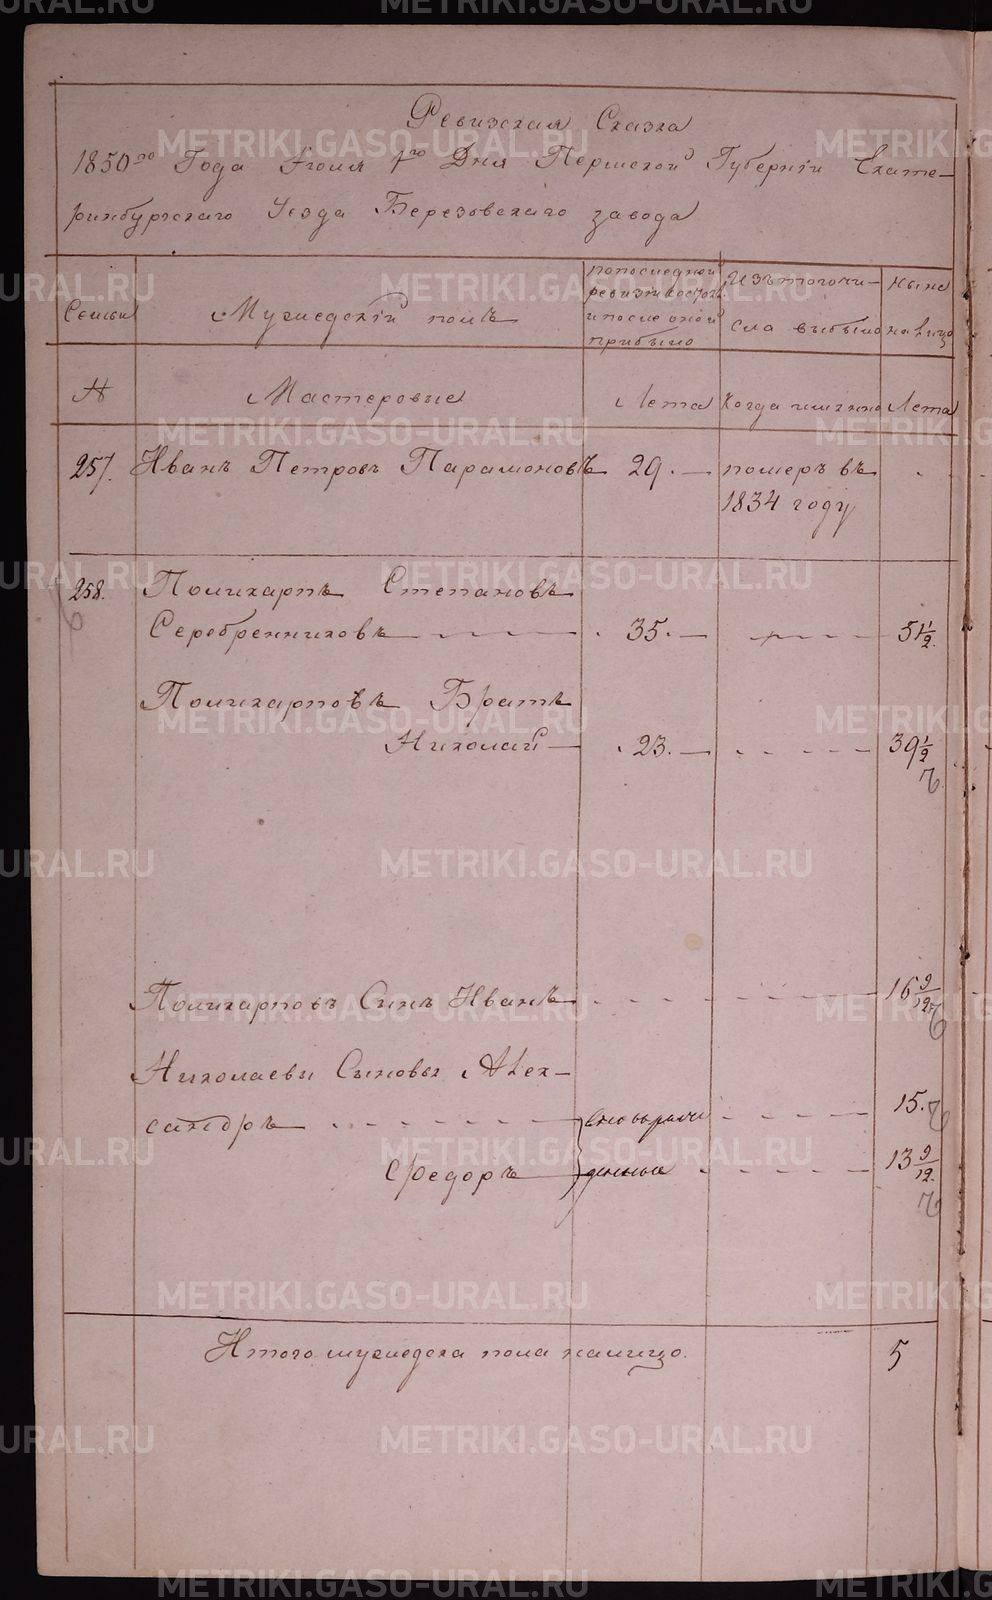 Ревизская Сказка
1850го Года Июля 1го Дня Пермской Губерніи Екате-
ринбургскаго Уезда Березовскаго завода
Семьи
Мужескій полъ
по последней
ревизіи состояло
и после оной
прибыло
Изъ того чи-
сла выбыло
ныне
на лицо
№ Мастеровые Лета Когда именно Лета
257. Иванъ Петровъ Парамоновъ 29. померъ въ
1834 году
258. Поликарпъ Степановъ
Серебренниковъ 35. 51 1/2.
Поликарповъ Братъ
Николай 23. 39 1/2
Поликарповъ Сынъ Иванъ 16 9/12
Николаевы Сыновья Алек-
сандръ вновь рож- 15.
Федоръ денные 13 9/12.
Итого мужеска пола налицо. 5
METRIKI.GASO-URAL.RU